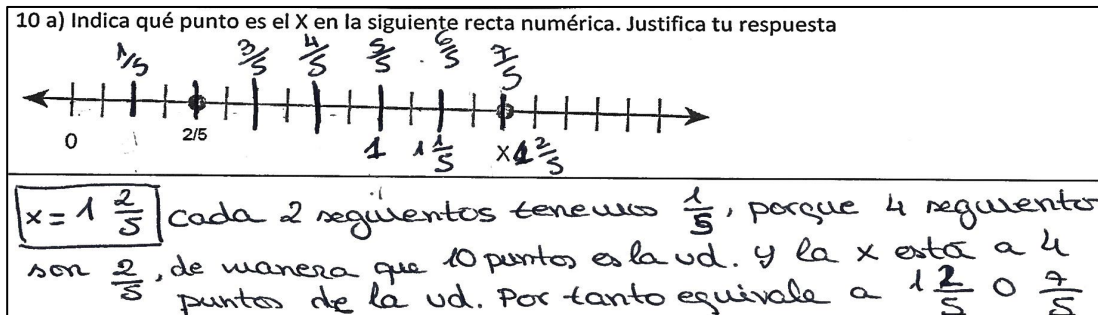 10 a) Indica qué punto es el X en la siguiente recta numérica. Justifica tu respuesta
1/5 3/5 4/5 5/5 6/5 7/5
0 2/5 1 1 1/5 X 1 2/5
x = 1 2/5 cada 2 segmentos tenemos 1/5, porque 4 segmentos
son 2/5, de manera que 10 puntos es la ud. y la x está a 4
puntos de la ud. Por tanto equivale a 1 2/5 o 7/5